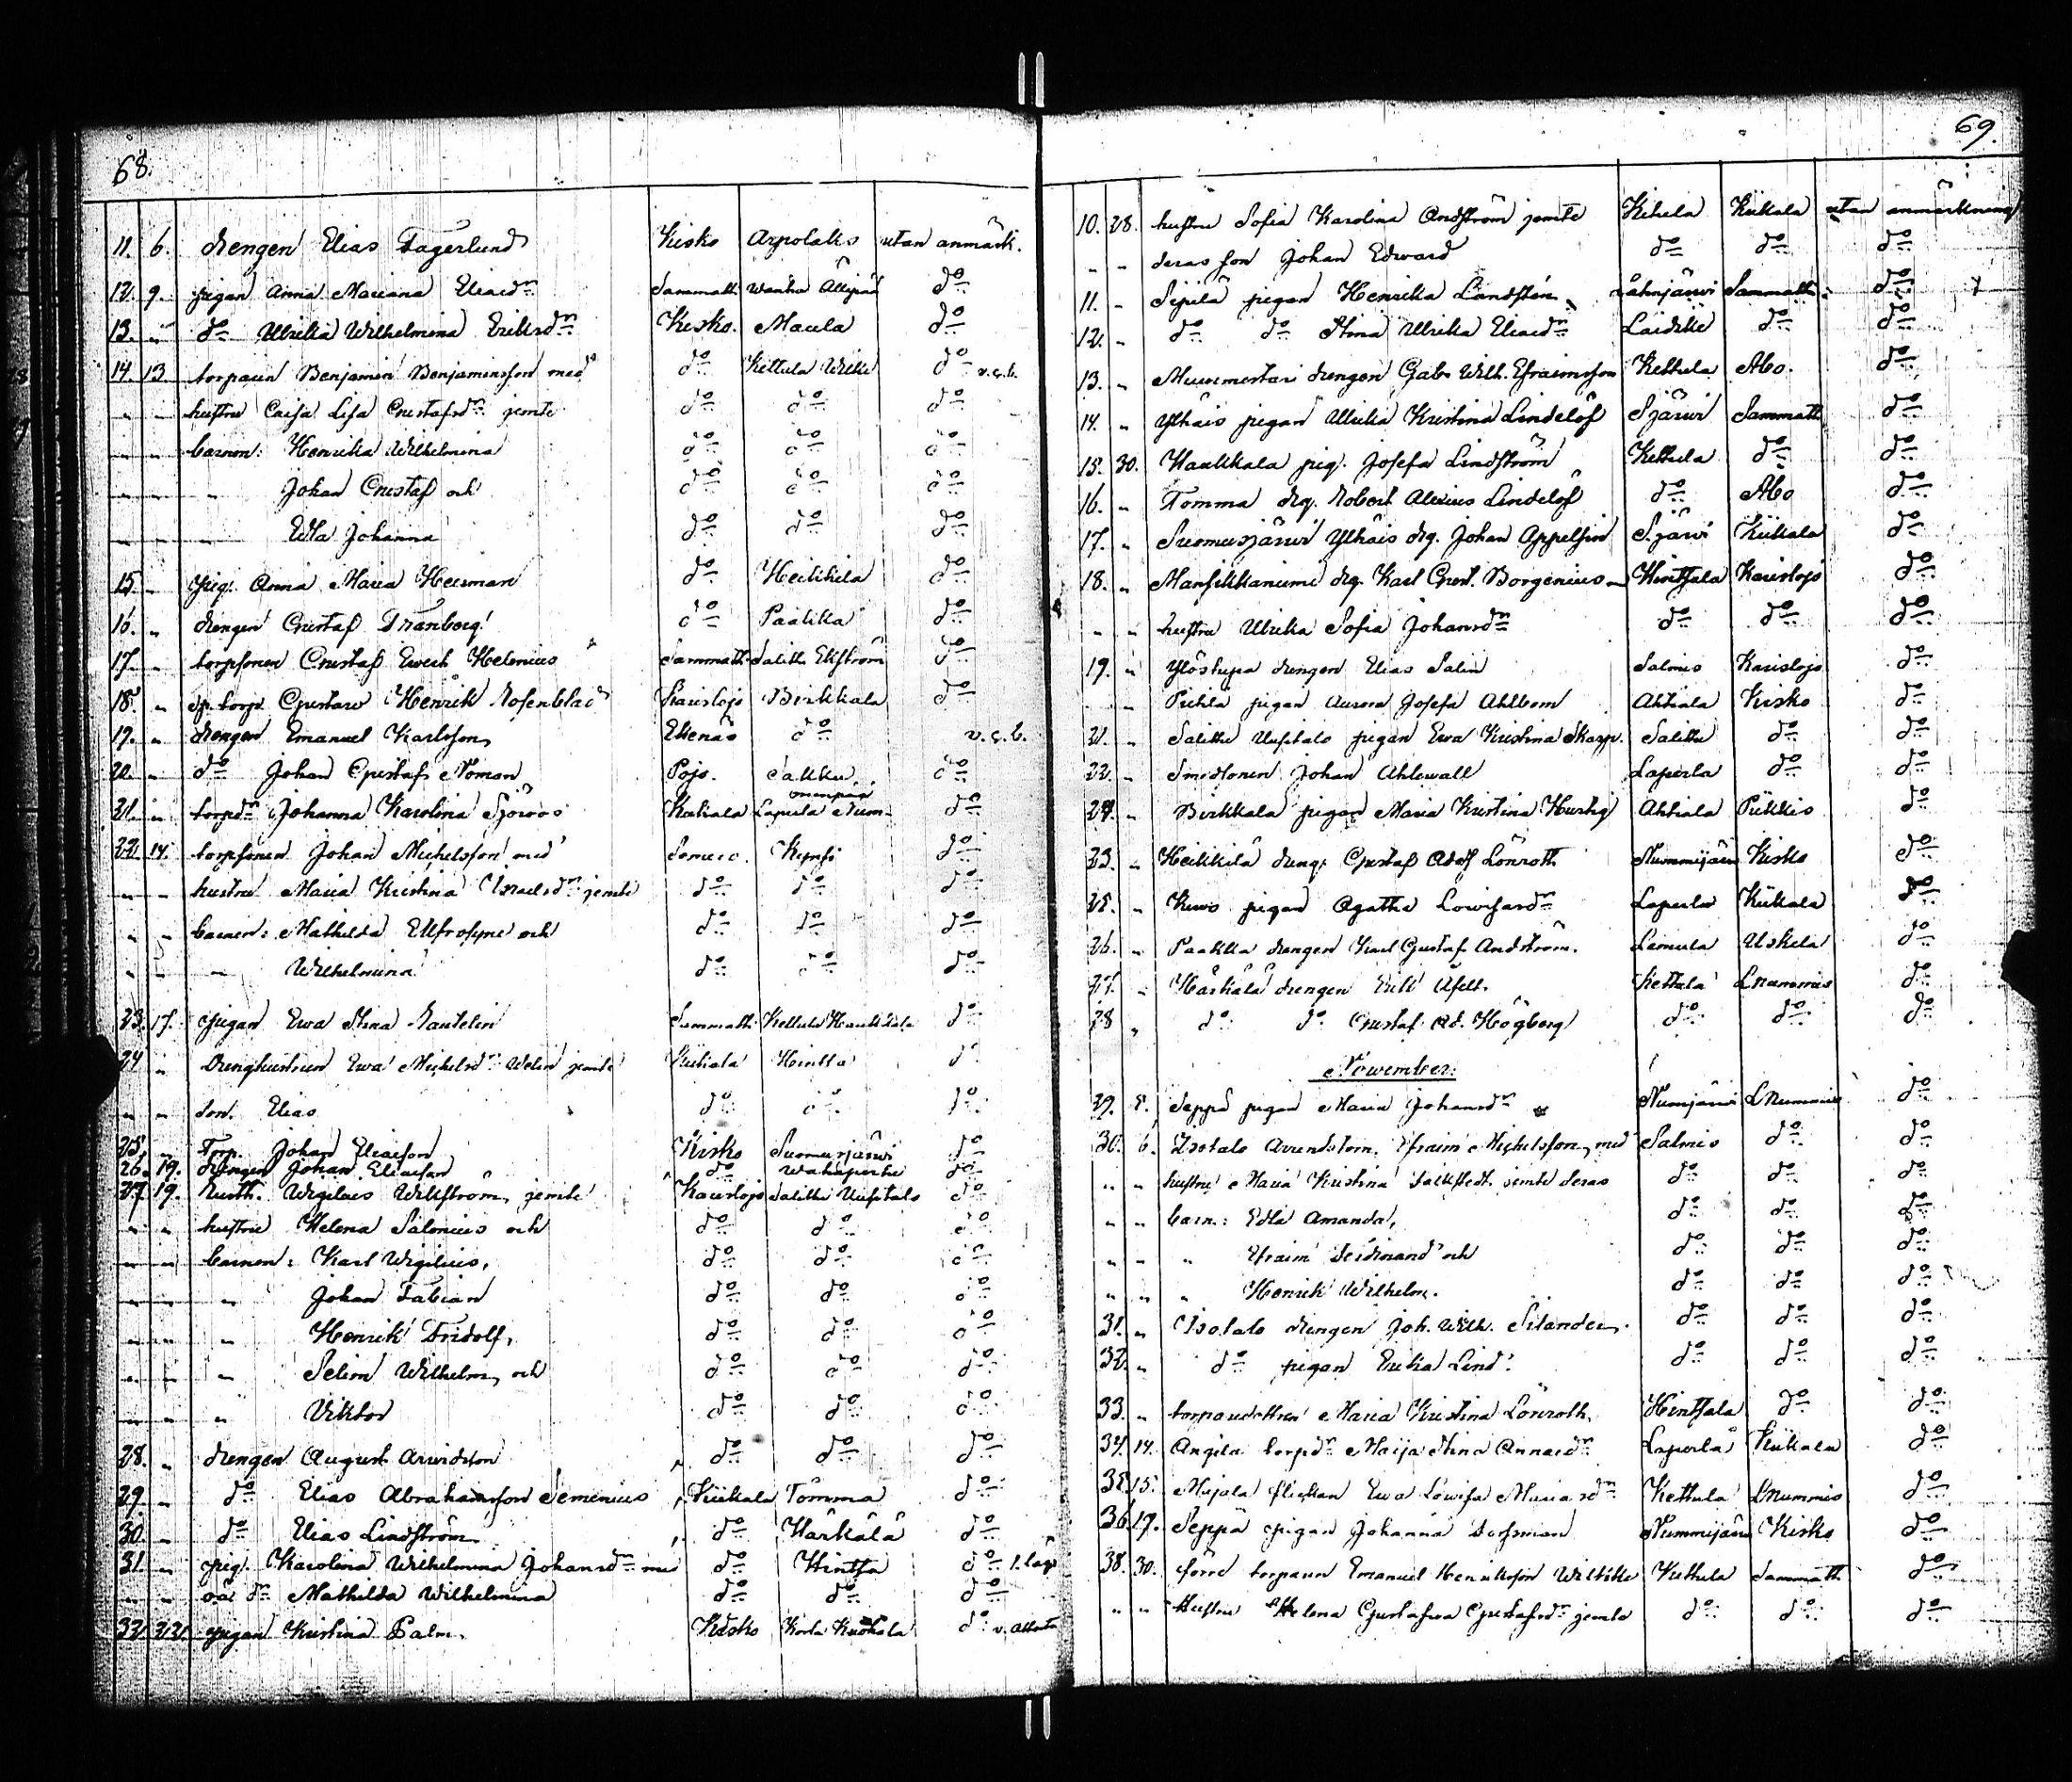 68.
11. 6. drengen Elias Fagerlund Kisko Arpolaks utan anmärk.
12. 9. pigan Anna Mariana Eliaedr Sammatti Wanha Ällipää do
13. " do Ulrika Wilhelmina Eriksdr Kisko. Maula do
14. 13. torparen Benjamin Benjaminsson med do Kettula Wilkki do v.ç.b.
" " hustru Caisa Lisa Gustafsdr jemte do do do
" " barnen: Henrika Wilhelmina do do do
" " " Johan Gustaf och do do do
" " " Edla Johanna do do do
15. " pig. Anna Maria Herman do Heikkilä do
16. " drengen Gustaf Tranberg do Paakka do
17. " torpsonen Gustaf Ewert Helenius Sammatti Salitt. Ekström do
18. " sp. torp. Gustaw Henrik Rosenblad Karislojo Birkkala do
19. " drengen Emanuel Karlsson Ekenäs do v.ç.b.
20. " do Johan Gustaf Noman Pojo. Sakku do
21. " torpdr Johanna Karolina Sjöroos Kiikala Laperla do
22. 14. torpsonen Johan Michelsson med Somero. Kynsi do
" " hustru Maria Kristina Israelsdr jemte do do do
" " barnen: Mathilda Elfrosyne och do do do
" " " Wilhelmina do do do
23. 17. pigan Ewa Stina Nautelin Sammatti Kettula Haukkala do
24 " Drenghustrun Ewa Michelsdr Welin jemte Kiikala Hintta do
" " son. Elias do do do
25. " Torp. Johan Eliaeson Kisko Suomusjärwi do
26. 19. drengen Johan Eliaeson do do
27. 19. Rusth. Wigilius Wikström, jemte Karislojo Salittu Uusitalo do
" " hustru Helena Salonius och do do do
" " barnen: Karl Wigilius, do do do
" " " Johan Fabian do do do
" " " Henrik Fridolf, do do do
" " " Selim Wilhelm, och do do do
" " " Viktor do do do
28. " drengen August Arwidsson do do do
29. " do Elias Abrahamsson Semenius Kiikala Tomma do
30. " do Elias Lindström do Härkälä do
31. " pig. Karolina Wilhelmina Johansdr med do Hintsa do
" " oä. dr Mathilda Wilhelmina do do do
32. 22. pigan Kristina Palm. Kisko Korla Kuskola do
69.
10. 28. hustru Sofia Karolina Andström jemte Kihela Kiikala utan anmärkning
" " deras son Johan Edward do do do
11. " Sipilä pigan Henrika Landsten Lahnjärwi Sammatti do
12. " do do Stina Ulrika Eliaedr Laidike do do
13. " Muurmestari drengen Gab. Wilh. Efraimsson Kettula Åbo. do
14. " Ylhäis pigan Ulrika Kristina Lindelöf Sjärwi Sammatti do
15. 30. Haukkala pig. Josefa Lindström Kettula do do
16. " Tomma drg. Robert Alexius Lindelöf do Åbo do
17. " Suomusjärwi Ylhäis drg. Johan Appelsin Sjärwi Kiikala do
18. " Mansikkaniemi drg. Karl Gust. Borgenius Hintsala Karislojo do
" " hustru Ulrika Sofia Johansdr do do do
19. " Ylöstupa drengen Elias Salin Salmis Karislojo do
" Pietilä pigan Aurora Josefa Ahlbom Ahtiala Kisko do
21. " Salittu Uusitalo pigan Ewa Kristina Skarp. Salittu do do
22. " Smedsonen Johan Ahlewall Laperla do do
24. " Birkkala pigan Maria Kristina Hurtig Ahtiala Piikkis do
23. " Heikkilä dreng. Gustaf Adolf Lönroth Nummijärwi Kisko do
25. " Kuvo pigan Agatha Lowisasdr Laperla Kiikala do
26. " Paakka drengen Karl Gustaf Andström. Lemula Uskela do
27. " Härkälä drengen Erik Åfelt. Kettula LNummis do
28 " do do Gustaf Ad. Högberg do do do
Nowember:
29. 5. Seppä pigan Maria Johansdr Numjärwi LNummis do
30. 6. Isotalo Arrendatorn. Efraim Michelsson, med Salmis do do
" " hustru Maria Kristina Falkstedt. jemte deras do do do
" " barn.: Edla Amanda, do do do
" " " Efraim Ferdinand och do do do
" " " Henrik Wilhelm. do do do
31. " Isotalo drengen Joh. Wilh. Silander. do do do
32. " do pigan Erika Lind. do do do
33. " torparedottren Maria Kristina Lönroth. Hintsala do do
34. 14. Angila torpdr Maija Stina Annaedr Laperla Kiikala do
35. 15. Majala flickan Ewa Lowisa Mariaedr Kettula LNummis do
36. 17. Seppä pigan Johanna Forsman Nummijärwi Kisko do
38. 30. förre torparen Emanuel Henriksson Wilkki Kettula Sammatti do
" " Hustru Helena Gustafwa Gustafsdr jemte do do do